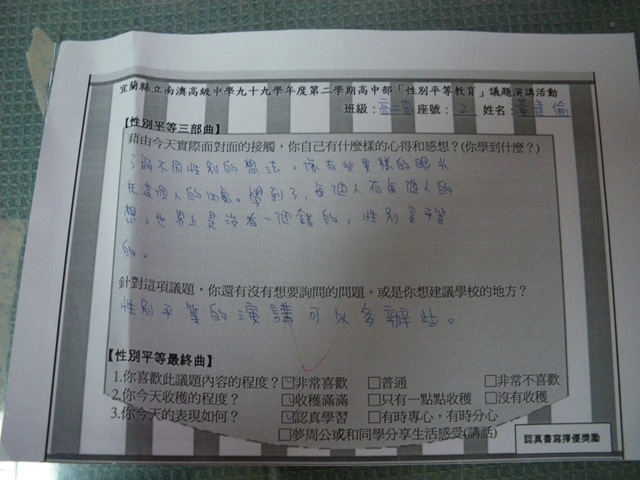 宜蘭縣立南澳高級中學九十九學年度第二學期高中部「性別平等教育」議題演講活動
班級：高二 座號：2 姓名：黃 倫
【性別平等三部曲】
藉由今天實際面對面的接觸，你自己有什麼樣的心得和感想？(你學到什麼？)
了解不同性別的想法，還有些異樣的眼光
個人的 。學到了，每個人有每個人的
想，世界上是沒有一個錯的，性別是平等
的。
針對這項議題，你還有沒有想要詢問的問題、或是你想建議學校的地方？
性別平等的演講可以多辦些。
【性別平等最終曲】
1.你喜歡此議題內容的程度？☑非常喜歡 □普通 □非常不喜歡
2.你今天收穫的程度？ ☑收穫滿滿 □只有一點點收穫 □沒有收穫
3.你今天的表現如何？ ☑認真學習 □有時專心，有時分心
□夢周公或和同學分享生活感受(講話)
認真書寫擇優獎勵